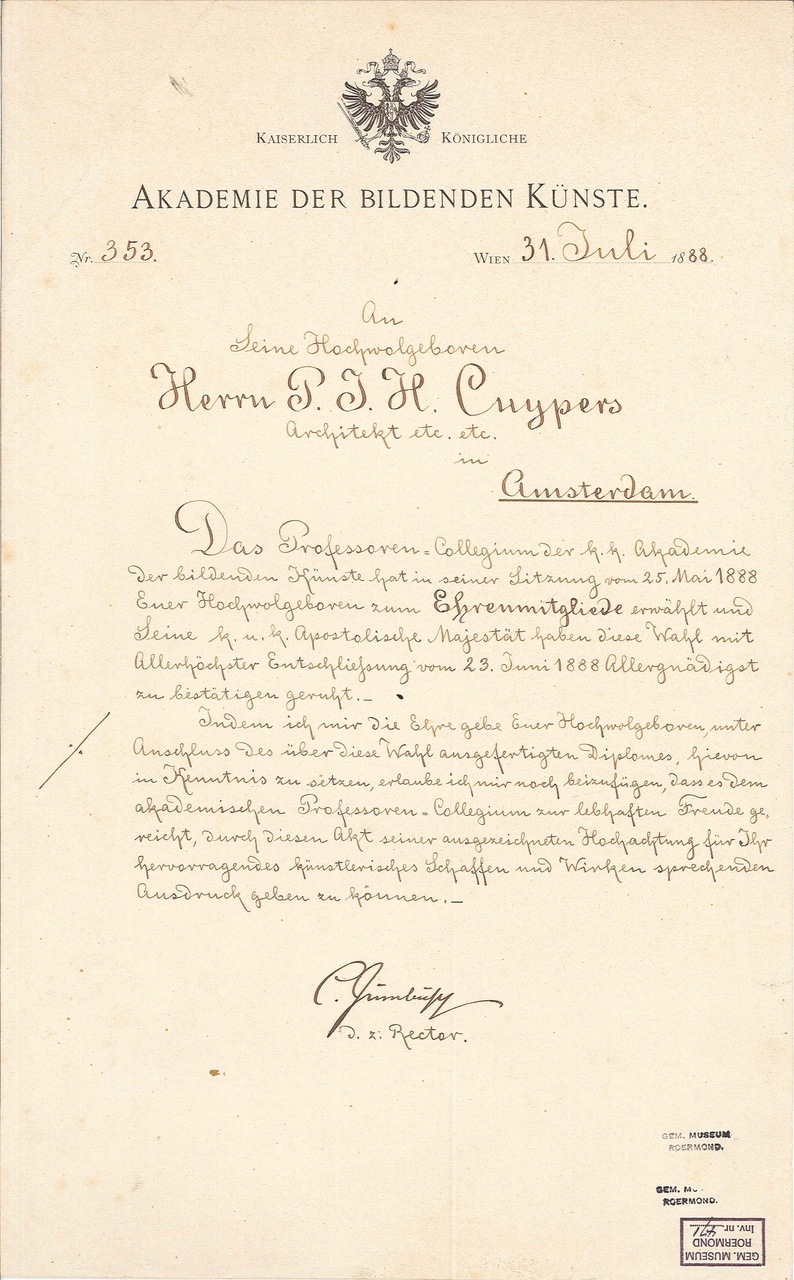 KAISERLICH KÖNIGLICHE
AKADEMIE DER BILDENDEN KÜNSTE.
Nr. 353. WIEN 31. Juli 1888.
An
Seine Hochwolgeboren
Herrn P. J. H. Cuypers
Architekt etc. etc.
in
Amsterdam.
Das Professoren=Collegium der k. k. Akademie
der bildenden Künste hat in seiner Sitzung vom 25. Mai 1888
Euer Hochwolgeboren zum Ehrenmitgliede erwählt und
Seine k. u. k. Apostolische Majestät haben diese Wahl mit
Allerhöchster Entschließung vom 23. Juni 1888 Allergnädigst
zu bestätigen geruht._
Indem ich mir die Ehre gebe Euer Hochwolgeboren, unter
Anschluss des über diese Wahl ausgefertigten Diplomes, hievon
in Kenntnis zu setzen, erlaube ich mir noch beizufügen, dass es dem
akademischen Professoren=Collegium zur lebhaften Freude ge,
reicht, durch diesen Akt seiner ausgezeichneten Hochachtung für Ihr
hervorragendes künstlerisches Schaffen und Wirken sprechenden
Ausdruck geben zu können._
./.
C. Zumbusch
d. z. Rector.
GEM. MUSEUM
ROERMOND.
GEM. MU
ROERMOND.
GEM. MUSEUM
ROERMOND
Inv. nr.